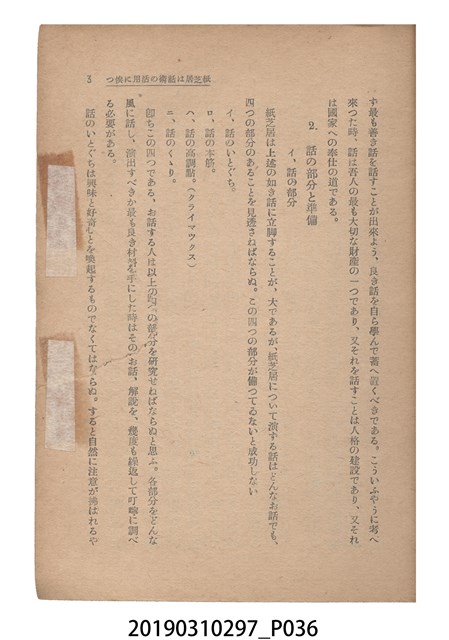 紙芝居は話術の活用に俟つ 3
す最も善き話を話すことが出來よう、良き話を自ら學んで蓄へ置くべきである。こういふやうに考へ
來つた時、話は吾人の最も大切な財産の一つであり、又それを話すことは人格の建設であり、又それ
は國家への奉仕の道である。
2. 話の部分と準備
イ、話の部分
紙芝居は上述の如き話に立脚することが、大であるが、紙芝居について演ずる話はどんなお話でも、
四つの部分のあることを見透さねばならぬ。この四つの部分が備つてゐないと成功しない
イ、話のいとぐち。
ロ、話の本筋。
ハ、話の高調點。(クライマツクス)
ニ、話のくゝり。
卽ちこの四つである、お話する人は以上の四つの部分を研究せねばならぬと思ふ。各部分をどんな
風に話し、演出すべきか最も良き材料を手にした時はそのお話、解說を、幾度も繰返して叮嚀に調べ
る必要がある。
話のいとぐちは興味と好奇心とを喚起するものでなくてはならぬ。すると自然に注意が拂はれるや
20190310297_P036